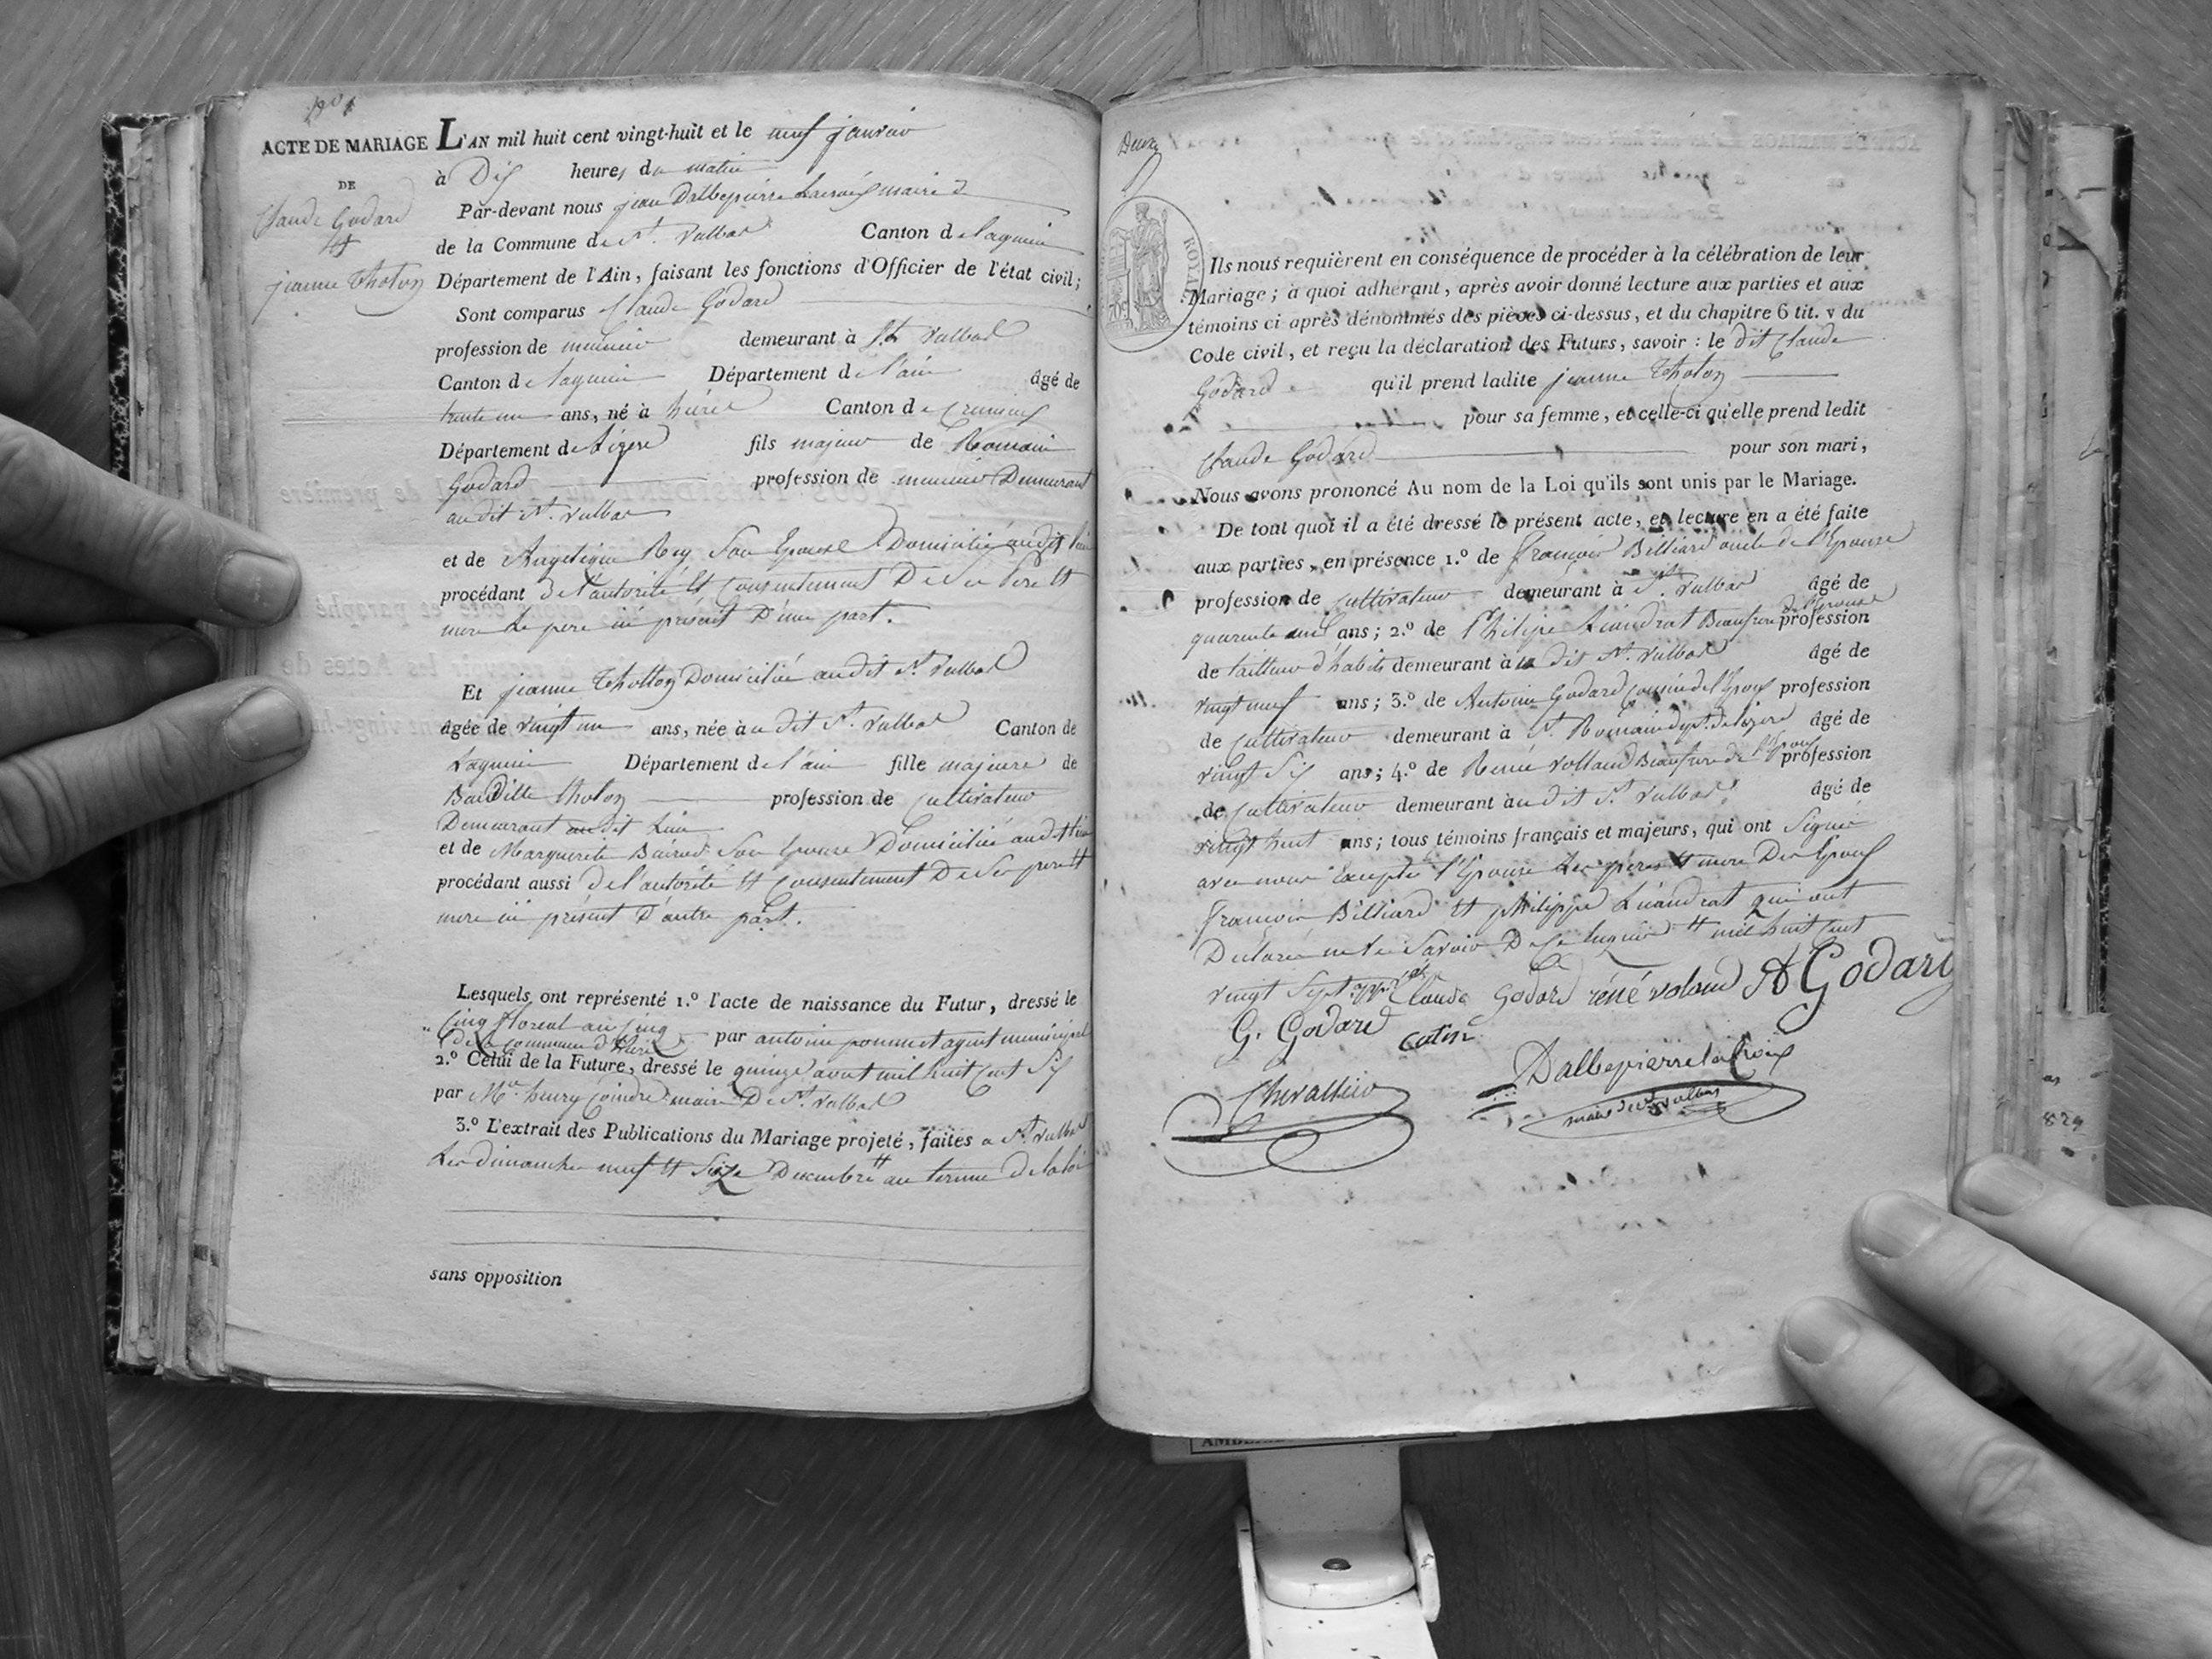 ACTE DE MARIAGE L'AN mil huit cent vingt-huit et le neuf janvier
DE
Claude Godard
et
jeanne Tholon
à Dix heures du matin
Par-devant nous jean Dalbepierre Lacroix maire
de la Commune de St. Vulbas Canton de Lagnieu
Département de l'Ain, faisant les fonctions d'Officier de l'état civil;
Sont comparus Claude Godard
profession de meunier demeurant à St Vulbas
Canton de Lagnieu Département de l'ain âgé de
trente un ans, né à hière Canton de Cremieux
Département de L'izere fils majeur de Romain
Godard profession de meunier Demeurant
au dit St. Vulbas
et de Angelique Rey Son Epouse Domiciliée au dit lieu
procédant de l'autorité et Consentement De Ses Père et
mere Le pere ici présent D'une part.
Et jeanne Thollon Domiciliée au dit St. Vulbas
âgée de vingt un ans, née à u dit St. Vulbas Canton de
Lagnieu Département de l'ain fille majeure de
Baudille tholon profession de Cultivateur
Demeurant au dit Lieu
et de Marguerite Son Epouse Domiciliée au dit lieu
procédant aussi de l'autorité et Consentement De Ses pere et
mere ici présent D'autre part.
Lesquels ont représenté 1.º l'acte de naissance du Futur, dressé le
Cinq floreal an Cinq par antoine pommet agent municipal
de la Commune d'hière
2.º Celui de la Future, dressé le quinze avout mil huit Cent Six
par Mr. henry Coindre maire De St. Vulbas
3.º L'extrait des Publications du Mariage projeté, faites a St. Vulbas
Les dimanches neuf et Seize Decembre au terme de la loi
sans opposition
Deux
ROYAL
Ils nous requièrent en conséquence de procéder à la célébration de leur
Mariage; à quoi adhérant, après avoir donné lecture aux parties et aux
témoins ci après dénommés des pièces ci-dessus, et du chapitre 6 tit. v du
Code civil, et reçu la déclaration des Futurs, savoir: le dit Claude
Godard qu'il prend ladite jeanne Tholon
pour sa femme, et celle-ci qu'elle prend ledit
Claude Godard pour son mari,
Nous avons prononcé Au nom de la Loi qu'ils sont unis par le Mariage.
De tout quoi il a été dressé le présent acte, et lecture en a été faite
aux parties, en présence 1.º de françois Billiard oncle de l'Epouse
profession de Cultivateur demeurant à St. Vulbas âgé de
quarente ans; 2.º de Philipe Liandrat Beaufrere de l'Epouse profession
de tailleur d'habits demeurant à u dit St. Vulbas âgé de
vingt neuf ans; 3.º de Antoine Godard Cousin de l'Epoux profession
de Cultivateur demeurant à St. Romain dept. de lizere âgé de
vingt Six ans; 4.º de Renné Vollaud Beaufrere de l'Epoux profession
de Cultivateur demeurant àu dit St. Vulbas âgé de
vingt huit ans; tous témoins français et majeurs, qui ont Signé
avec nous Excepté l'Epouse Les peres et mere Des Epoux
françois Billiard et philippe Liandrat qui ont
Déclaré ne le Savoir De Ce enquis et mil huit Cent
vingt Sept
Claude Godard réné voland A Godard
G. Godard Cotin
Chevallier
Dalbepierre la Croix
maire de St Vulbas
829